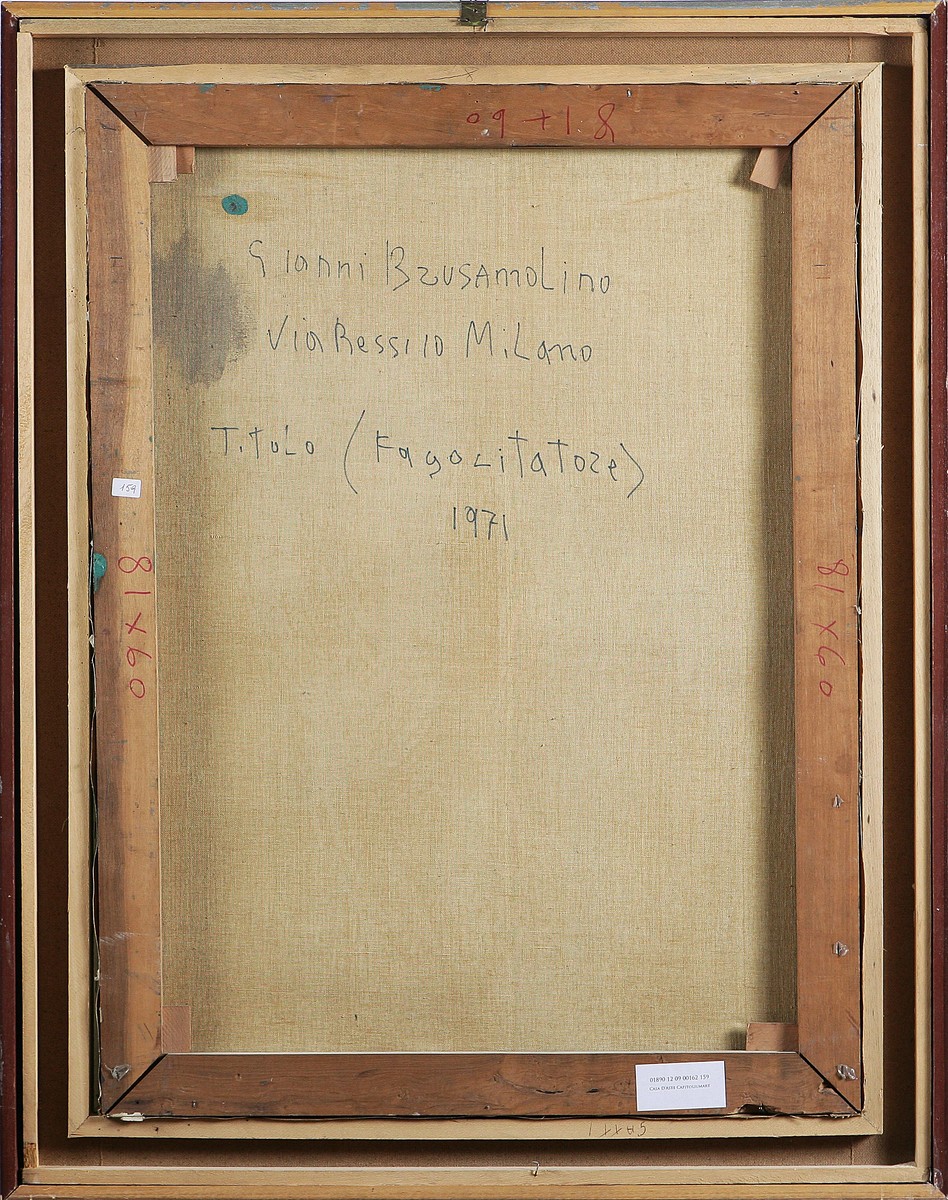 81+60
Gianni Brusamolino
Via Ressi 10 Milano
Titolo (Fagocitatore)
1971
159
81x60
81x60
01890 12 09 00162 159
Casa D'Aste Capitoliumart